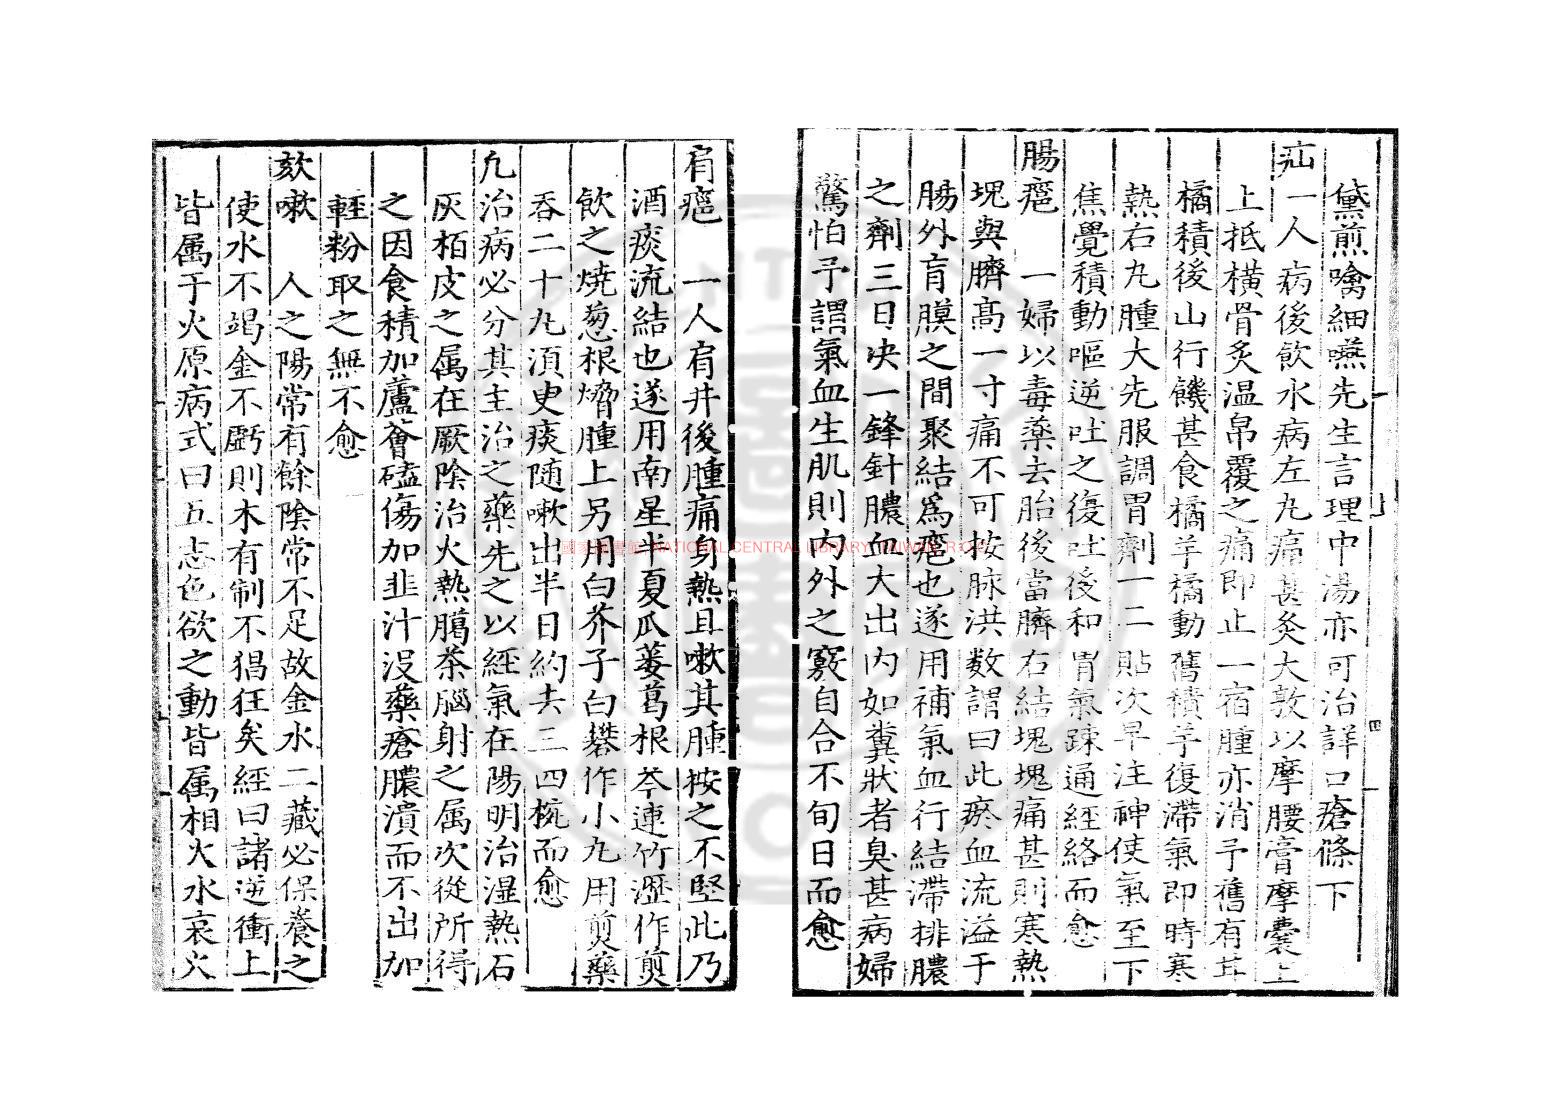 黛煎噙細嚥先生言理中湯亦可治詳口瘡條下
疝一人病後飲水病左丸痛甚灸大敦以摩腰膏摩囊上
上抵橫骨炙温帛覆之痛即止一宿腫亦消予舊有茸
橘積後山行饑甚食橘芋橘動舊積芋復滯氣即時寒
熱右丸腫大先服調胃劑一二貼次早注神使氣至下
焦覺積動嘔逆吐之復吐後和胃氣踈通經絡而愈
腸癰 一婦以毒藥去胎後當臍右結塊塊痛甚則寒熱
塊與臍高一寸痛不可按脉洪数謂曰此瘀血流溢于
腸外肓膜之間聚結爲癰也遂用補氣血行結滯排膿
之劑三日决一鋒針膿血大出内如糞狀者臭甚病婦
驚怕予謂氣血生肌則内外之竅自合不旬日而愈
肩癰 一人肩井後腫痛身熱且嗽其腫按之不堅此乃
酒痰流結也遂用南星半夏瓜蔞葛根芩連竹瀝作煎
飲之燒葱根熁腫上另用白芥子白礬作小丸用煎藥
吞二十丸湏更痰随嗽出半日約去三四椀而愈
凢治病必分其主治之藥先之以經氣在陽明治湿熱石
灰栢皮之属在厥陰治火熱臈茶腦射之属次從所得
之因食積加蘆薈磕傷加韭汁没藥瘡膿潰而不出加
輕粉取之無不愈
欬嗽 人之陽常有餘陰常不足故金水二藏必保養之
使水不竭金不虧則木有制不猖狂矣經曰諸逆衝上
皆属于火原病式曰五志色欲之動皆属相火水衰火
四
國家圖書館 NATIONAL CENTRAL LIBRARY, TAIWAN, R.O.C.